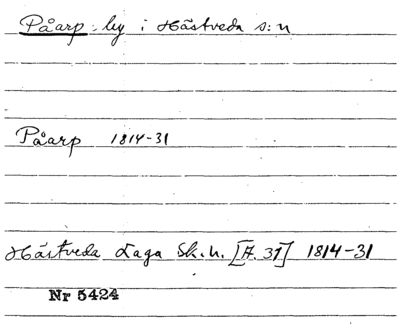 Påarp: by i Hästveda s:n
Påarp 1814-31
Hästveda Laga Sk.h. [A. 31] 1814-31
Nr 5424